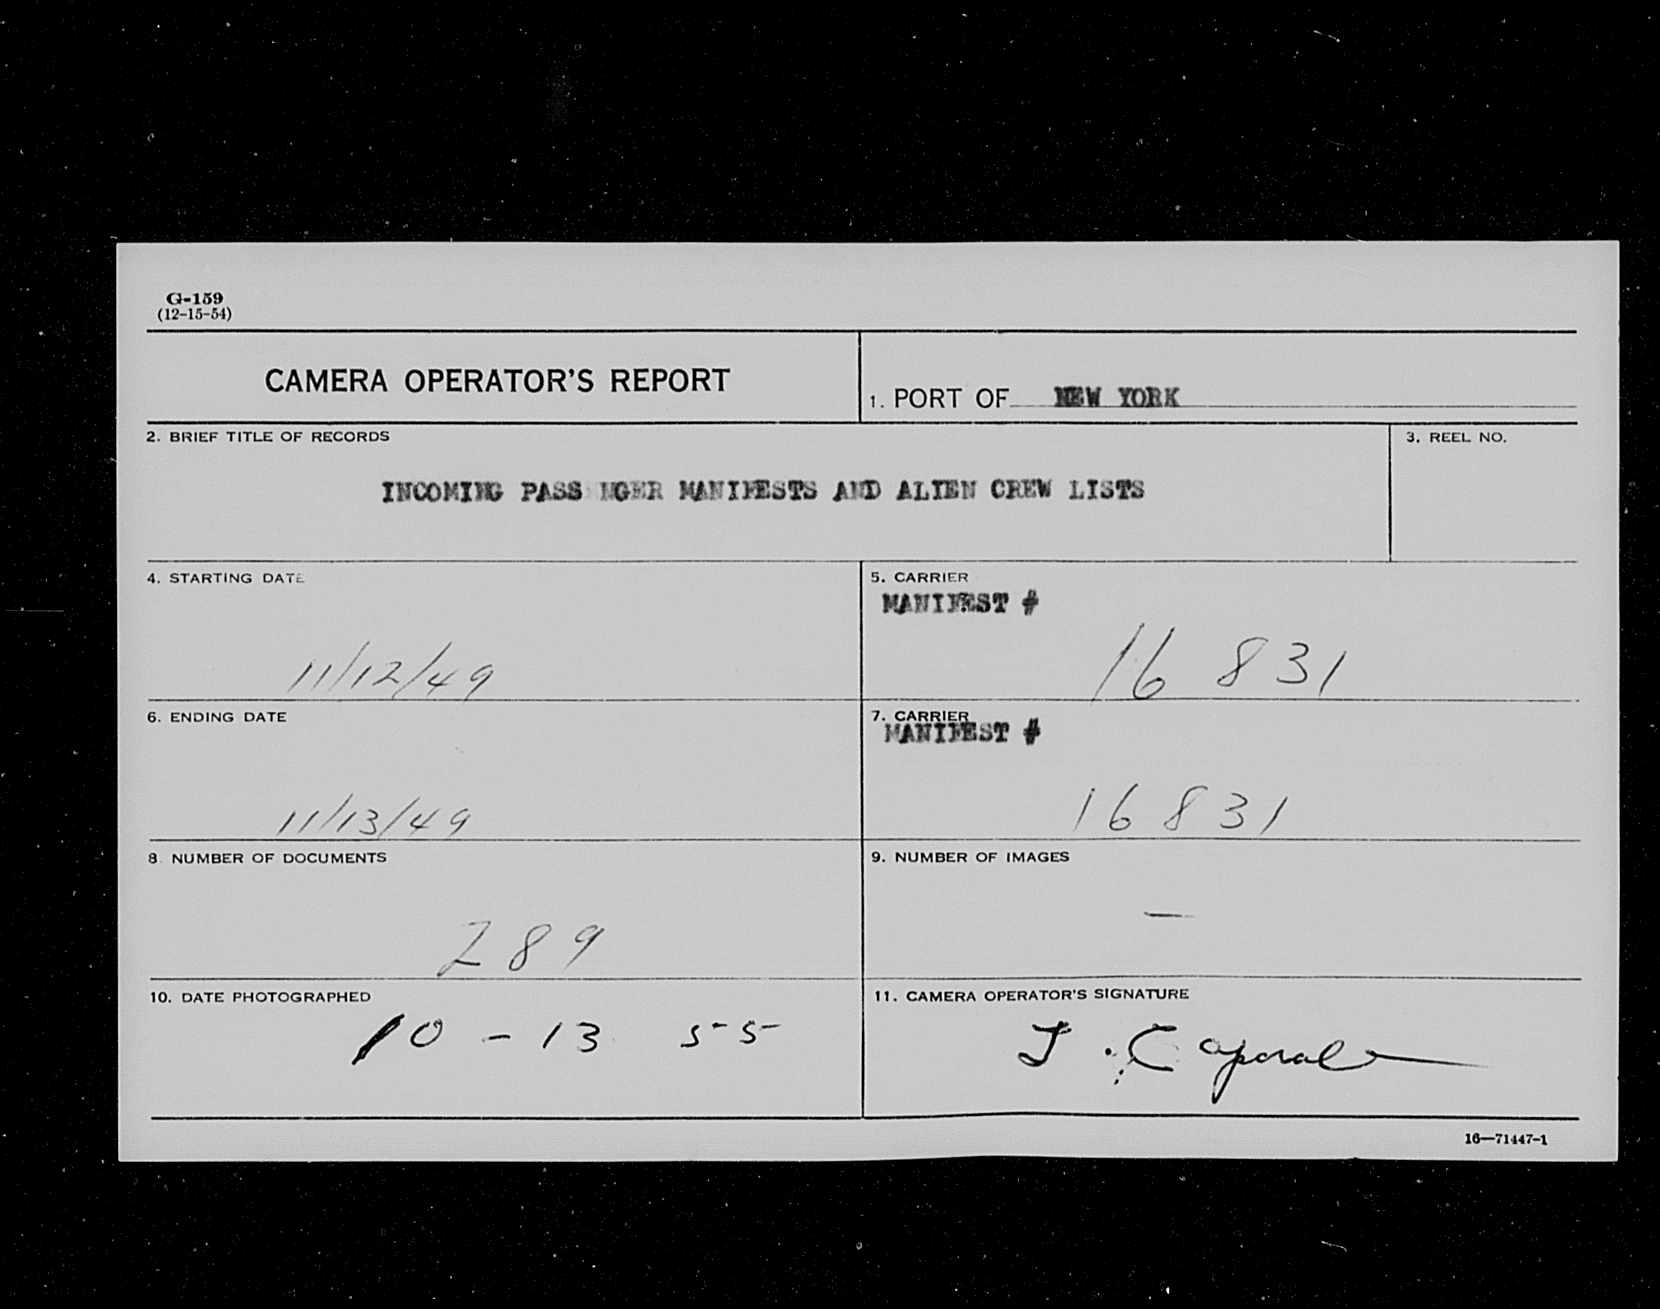 G-159
(12-15-54)
CAMERA OPERATOR'S REPORT
1. PORT OF NEW YORK
2. BRIEF TITLE OF RECORDS
3. REEL NO.
INCOMING PASS NGER MANIFESTS AND ALIEN CREW LISTS
4. STARTING DATE
11/12/49
5. CARRIER
MANIFEST #
16 831
6. ENDING DATE
11/13/49
7. CARRIER
MANIFEST #
16831
8. NUMBER OF DOCUMENTS
289
9. NUMBER OF IMAGES
—
10. DATE PHOTOGRAPHED
10 - 13 55
11. CAMERA OPERATOR'S SIGNATURE
16—71447-1